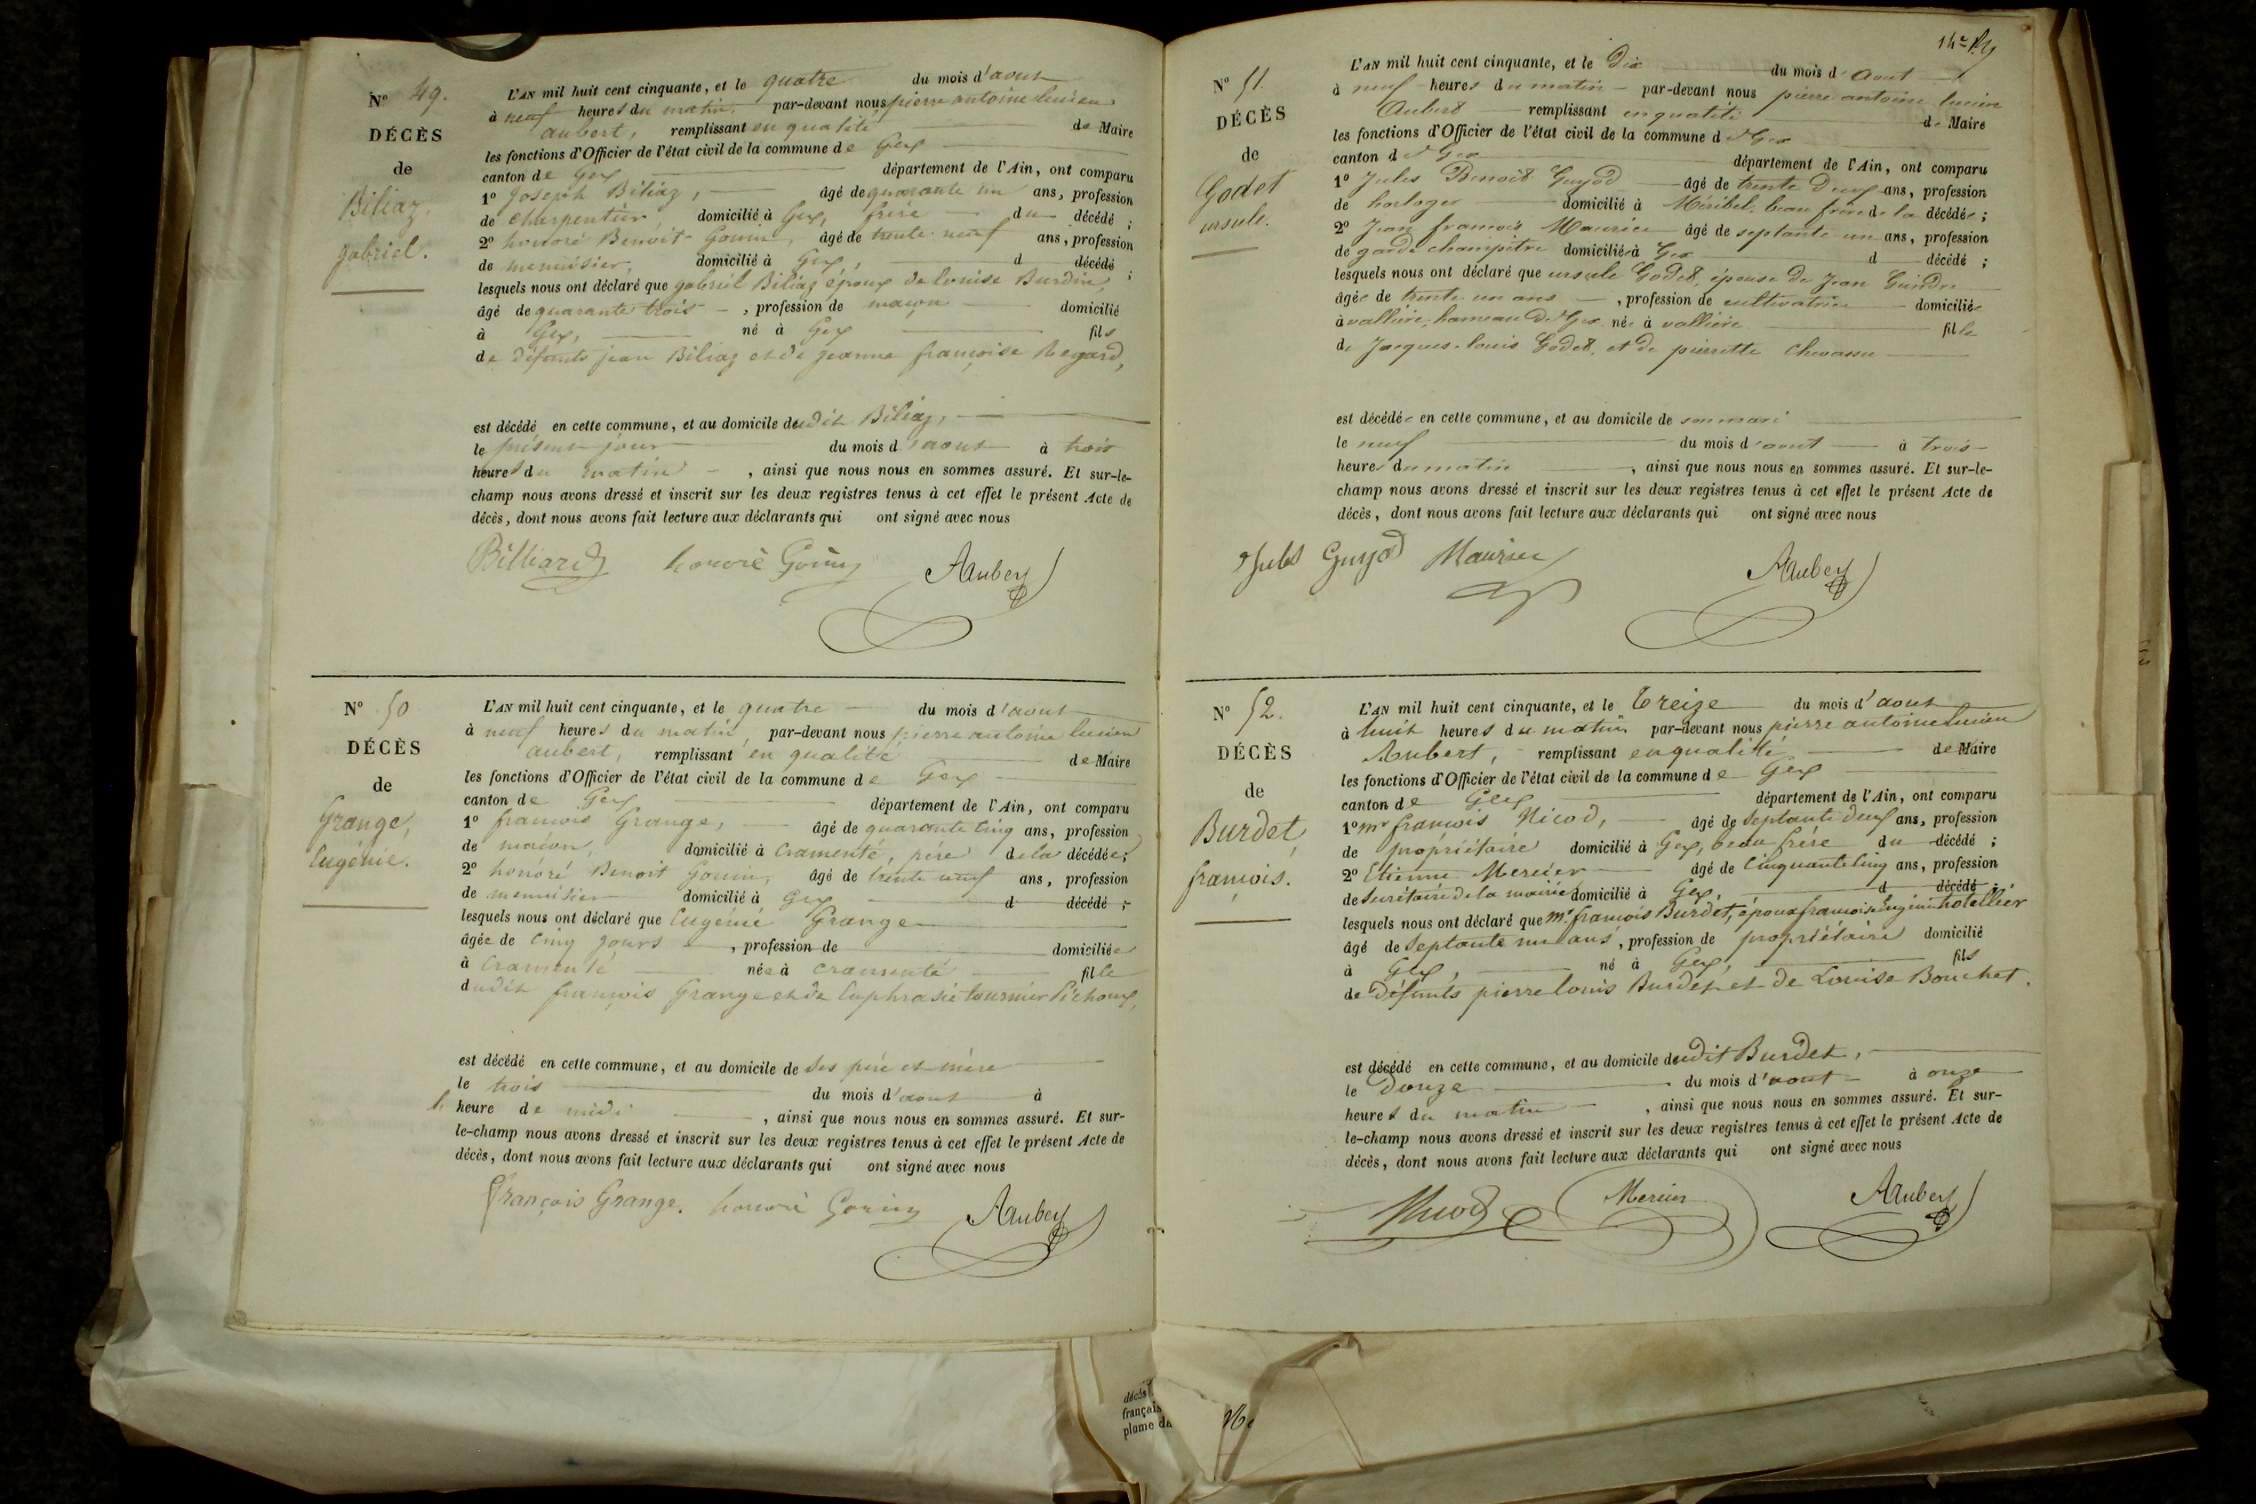 Nº 49.
DÉCÈS
de
Biliaz
gabriel.
L'AN mil huit cent cinquante, et le quatre du mois d'aout
à neuf heures du matin, par-devant nous pierre antoine lucien
aubert, remplissant en qualité de Maire
les fonctions d'Officier de l'état civil de la commune de Gex
canton de Gex département de l'Ain, ont comparu
1º Joseph Biliaz, âgé de quarante un ans, profession
de charpentier domicilié à Gex, frère du décédé ;
2º honoré Benoit Gouin, âgé de trente neuf ans, profession
de menuisier, domicilié à Gex, d décédé ;
lesquels nous ont déclaré que gabriel Biliaz époux de louise Burdin,
âgé de quarante trois , profession de maçon domicilié
à Gex, né à Gex fils
de défunts jean Biliaz et de jeanne françoise Regard,
est décédé en cette commune, et au domicile dudit Biliaz,
le présent jour du mois d'aout à trois
heures du matin , ainsi que nous nous en sommes assuré. Et sur-le-
champ nous avons dressé et inscrit sur les deux registres tenus à cet effet le présent Acte de
décès, dont nous avons fait lecture aux déclarants qui ont signé avec nous
Billiard honoré Gouin AAubert
Nº 50
DÉCÈS
de
Grange,
Eugénie.
L'AN mil huit cent cinquante, et le quatre du mois d'aout
à neuf heures du matin, par-devant nous pierre antoine lucien
aubert, remplissant en qualité de Maire
les fonctions d'Officier de l'état civil de la commune de Gex
canton de Gex département de l'Ain, ont comparu
1º françois Grange, âgé de quarante cinq ans, profession
de maçon, domicilié à Cramenté, père de la décédée;
2º honoré Benoit Gouin, âgé de trente neuf ans, profession
de menuisier domicilié à Gex d décédé ;
lesquels nous ont déclaré que Eugénie Grange
âgée de cinq jours , profession de domiciliée
à Cramenté née à cramenté fille
dudit françois Grange et de Euphrasie tournier
est décédé en cette commune, et au domicile de ses père et mère
le trois du mois d'aout à
heure de midi , ainsi que nous nous en sommes assuré. Et sur-
le-champ nous avons dressé et inscrit sur les deux registres tenus à cet effet le présent Acte de
décès, dont nous avons fait lecture aux déclarants qui ont signé avec nous
François Grange. honoré Gouin AAubert
Nº 51.
DÉCÈS
de
Godet
ursule.
L'AN mil huit cent cinquante, et le Dix du mois d'Aout
à neuf heures du matin par-devant nous pierre antoine lucien
Aubert remplissant en qualité de Maire
les fonctions d'Officier de l'état civil de la commune de Gex
canton de Gex département de l'Ain, ont comparu
1º Jules Benoit Guyod âgé de trente deux ans, profession
de horloger domicilié à Méribel, beau frère de la décédée ;
2º Jean françois Maurice âgé de septante un ans, profession
de garde champêtre domicilié à Gex d décédé ;
lesquels nous ont déclaré que ursule Godet, épouse de Jean Guindre
âgée de trente un ans , profession de cultivatrice domiciliée
à vallière, hameau de Gex née à vallière fille
de Jacques louis Godet, et de pierrette Chevassu
est décédée en cette commune, et au domicile de son mari
le neuf du mois d'aout à trois
heures du matin , ainsi que nous nous en sommes assuré. Et sur-le-
champ nous avons dressé et inscrit sur les deux registres tenus à cet effet le présent Acte de
décès, dont nous avons fait lecture aux déclarants qui ont signé avec nous
Jules Guyod Maurice AAubert
Nº 52.
DÉCÈS
de
Burdet,
françois.
L'AN mil huit cent cinquante, et le Treize du mois d'aout
à huit heures du matin par-devant nous pierre antoine lucien
Aubert, remplissant en qualité de Maire
les fonctions d'Officier de l'état civil de la commune de Gex
canton de Gex département de l'Ain, ont comparu
1º mr françois Nicod, âgé de septante deux ans, profession
de propriétaire domicilié à Gex, beau frère du décédé ;
2º Etienne Mercier âgé de cinquante cinq ans, profession
de secrétaire de la mairie domicilié à Gex, d décédé ;
lesquels nous ont déclaré que mr françois Burdet, époux françoise Eugénie hotellier
âgé de septante un ans , profession de propriétaire domicilié
à Gex, né à Gex, fils
de défunts pierre louis Burdet et de Louise Bouchet.
est décédé en cette commune, et au domicile dudit Burdet,
le Douze du mois d'aout à onze
heures du matin , ainsi que nous nous en sommes assuré. Et sur-
le-champ nous avons dressé et inscrit sur les deux registres tenus à cet effet le présent Acte de
décès, dont nous avons fait lecture aux déclarants qui ont signé avec nous
Nicod Mercier AAubert
décès
français
plume da